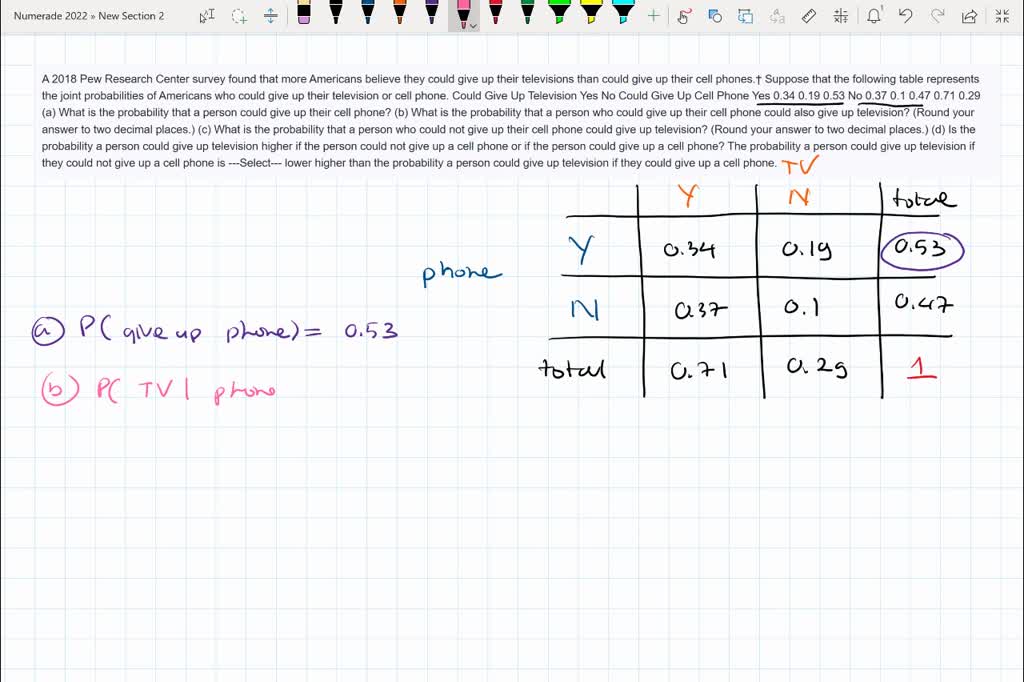 Numerade 2022 » New Section 2
A 2018 Pew Research Center survey found that more Americans believe they could give up their televisions than could give up their cell phones.† Suppose that the following table represents
the joint probabilities of Americans who could give up their television or cell phone. Could Give Up Television Yes No Could Give Up Cell Phone Yes 0.34 0.19 0.53 No 0.37 0.1 0.47 0.71 0.29
(a) What is the probability that a person could give up their cell phone? (b) What is the probability that a person who could give up their cell phone could also give up television? (Round your
answer to two decimal places.) (c) What is the probability that a person who could not give up their cell phone could give up television? (Round your answer to two decimal places.) (d) Is the
probability a person could give up television higher if the person could not give up a cell phone or if the person could give up a cell phone? The probability a person could give up television if
they could not give up a cell phone is ---Select--- lower higher than the probability a person could give up television if they could give up a cell phone.
TV
Y N total
Y 0.34 0.19 0.53
phone
N 0.37 0.1 0.47
total 0.71 0.29 1
(a) P( give up phone) = 0.53
(b) P( TV | phone